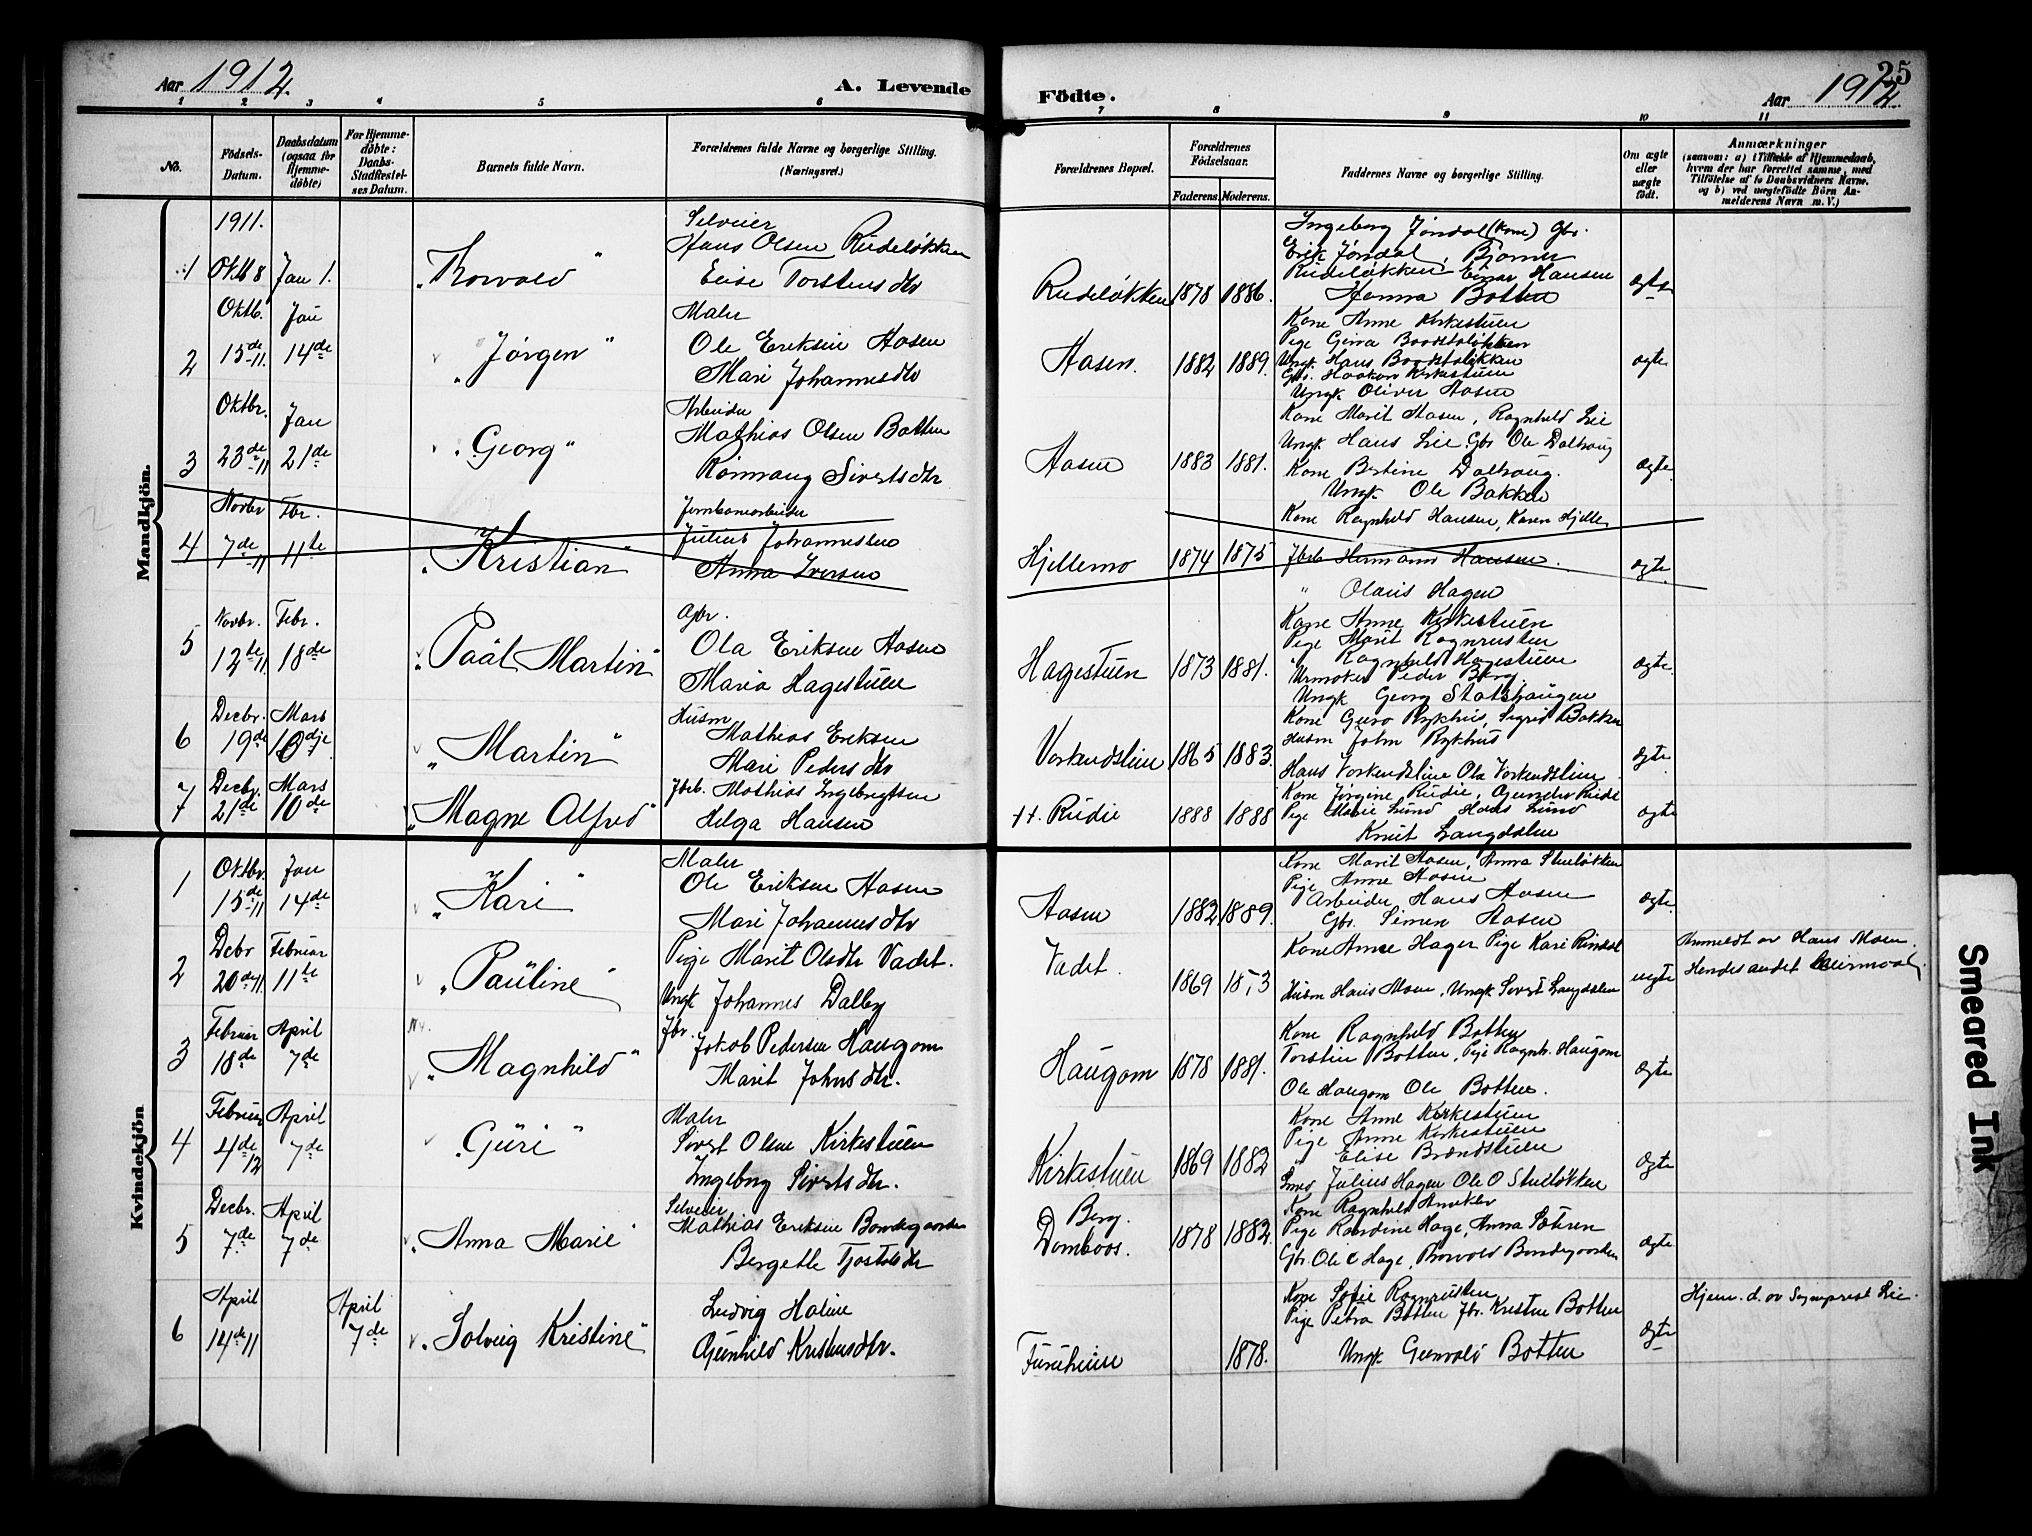 Aar 1912. A. Levende
Födte. Aar 1912 25
1 2 3 4 5 6 7 8 9 10 11
No.
Födsels-
Datum.
Daabsdatum
(ogsaa for
Hjemme-
döbte)
For Hjemme-
döbte:
Daabs-
Stadfæstel-
ses Datum.
Barnets fulde Navn.
Forældrenes fulde Navne og borgerlige Stilling.
(Næringsvei.)
Forældrenes Bopæl.
Forældrenes
Födselsaar.
Faderens. Moderens.
Faddernes Navne og borgerlige Stilling.
Om ægte
eller
uægte
født.
Anmærkninger
(saasom: a) i Tilfælde af Hjemmedaab,
hvem der har forrettet samme, med
Tilföielse af to Daabsvidners Navne.
og b) ved uægtefödte Börn An-
melderens Navn m. V.)
Mandkjön.
1911.
1 Oktb 8 Jan 1. "Thorvald"
Selveier
Hans Olsen Rudeløkken
Elise Torstensdtr
Rudeløkken 1878 1886.
Ingeborg Jøndal (Kone) Gbr.
Erik Jøndal, Bjarne
Rudeløkken Einar Hansen
Hanna Botten
ægte
2 Oktb. 15de 11. Jan 14de "Jørgen"
Maler
Ole Eriksen Aasen
Mari Johannesdtr
Aasen. 1882 1889.
Kone Anne Kirkestuen
Ungk. Hans
Gbr. Haakon Kirkestuen
Ungk. Oliver Aasen
ægte
3 Oktbr. 23de 11 Jan 21de "Georg"
Arbeider
Mathias Olsen Botten
Rønnaug Sivertsdtr
Aasen 1883 1881.
Kone Marit Aasen, Ragnhild Lie
Ungk Hans Lie. Gbr Ole Dalhaug
Kone Bertine Dalhaug.
Ungk Ole Bakken
ægte
4 Novbr 7de 11 Fbr. 11te "Kristian"
Jernbanearbeider
Julius Johannessen
Anna Iversen
Hjellemo 1874 1875
Kone Ragnhild Hansen, Karen Hjelle
Jbrb Hermann Hansen.
" Olaus Hagen
ægte.
5 Novbr. 12te 11. Febr. 18de "Paal Martin"
Gbr.
Ola Eriksen Aasen
Maria Hagestuen
Hagestuen 1873 1881.
Kone Anne Kirkestuen
Pige Marit Ragnrusten
" Ragnhild Hagestuen
Urmaker Peder Berg.
Ungk Georg Statshaugen
ægte
6 Decbr. 19de Mars 10de "Martin"
Husm
Mathias Eriksen
Mari Pedersdtr
Vorkendslien 1865 1883.
Kone Guro Rykhus, Sigrid Bakken
Husm John Rykhus
Hans Vorkendslien Ola Vorkendslien
ægte
7 Decbr. 21de Mars 10de "Magne Alfred"
Jbrb. Mathias Ingebrigtsen
Helga Hansen
Rudie 1888 1888
Kone Jørgine Rudie, Gunder Rudi
Pige Marie Lund Hans Lund
Knut Langdalen
ægte
Kvindekjön
1 Oktbr. 15de 11 Jan 14de "Kari"
Maler
Ole Eriksen Aasen
Mari Johannesdtr
Aasen 1882 1889.
Kone Marit Aasen, Anna Stueløkken
Pige Anne Aasen
Arbeider Hans Aasen
Gbr. Simen Aasen
ægte
2 Dcbr 20de 11. Februar 11te "Pauline"
Pige Marit Olsdtr Vadet.
Ungk Johannes Dalby
Vadet. 1869
Kone Anne Hager Pige Kari Rindal
Husm Hans Moen, Ungk Sivert Langdalen
uægte
Anmeldt av Hans Moen.
Hendes andet
3 Februar 18de April 7de "Magnhild"
Jbr.
Jakob Pedersen Haugom
Marit Johnsdtr.
Haugom 1878 1881.
Kone Ragnhild Botten
Torstein Botten, Pige Ragnh. Haugom
Ole Haugom Ole Botten.
ægte
4 Februar 4de 12 April 7de "Guri"
Maler
Sivert Olsen Kirkestuen
Ingeborg Sivertsdtr.
Kirkestuen 1869 1882
Kone Anne Kirkestuen
Pige Anne Kirkestuen
" Elise Brændstuen
Smed Julius Hagen Ole O Stueløkken
ægte
5 Decbr. 7de April 7de "Anna Marie"
Selveier
Mathias Eriksen Bondegaarden
Bergette Tjostolsdtr
Berg.
Dombaas. 1878 1882.
Kone Ragnhild
Pige Randine Hage, Anna Sætren
Gbr Ole C Hage, Thorvald Bondegaarden
ægte
6 April 14de 11 April 7de "Solveig Kristine"
Ludvig Holine
Gunhild Kristensdtr.
Furuheim 1878.
Kone Sofie Ragnrusten
Pige Petra Botten Jbr. Kristen Botten
Ungk Gunvald Botten
ægte
Hjem. d. av Sogneprest Lie.
Smeared Ink